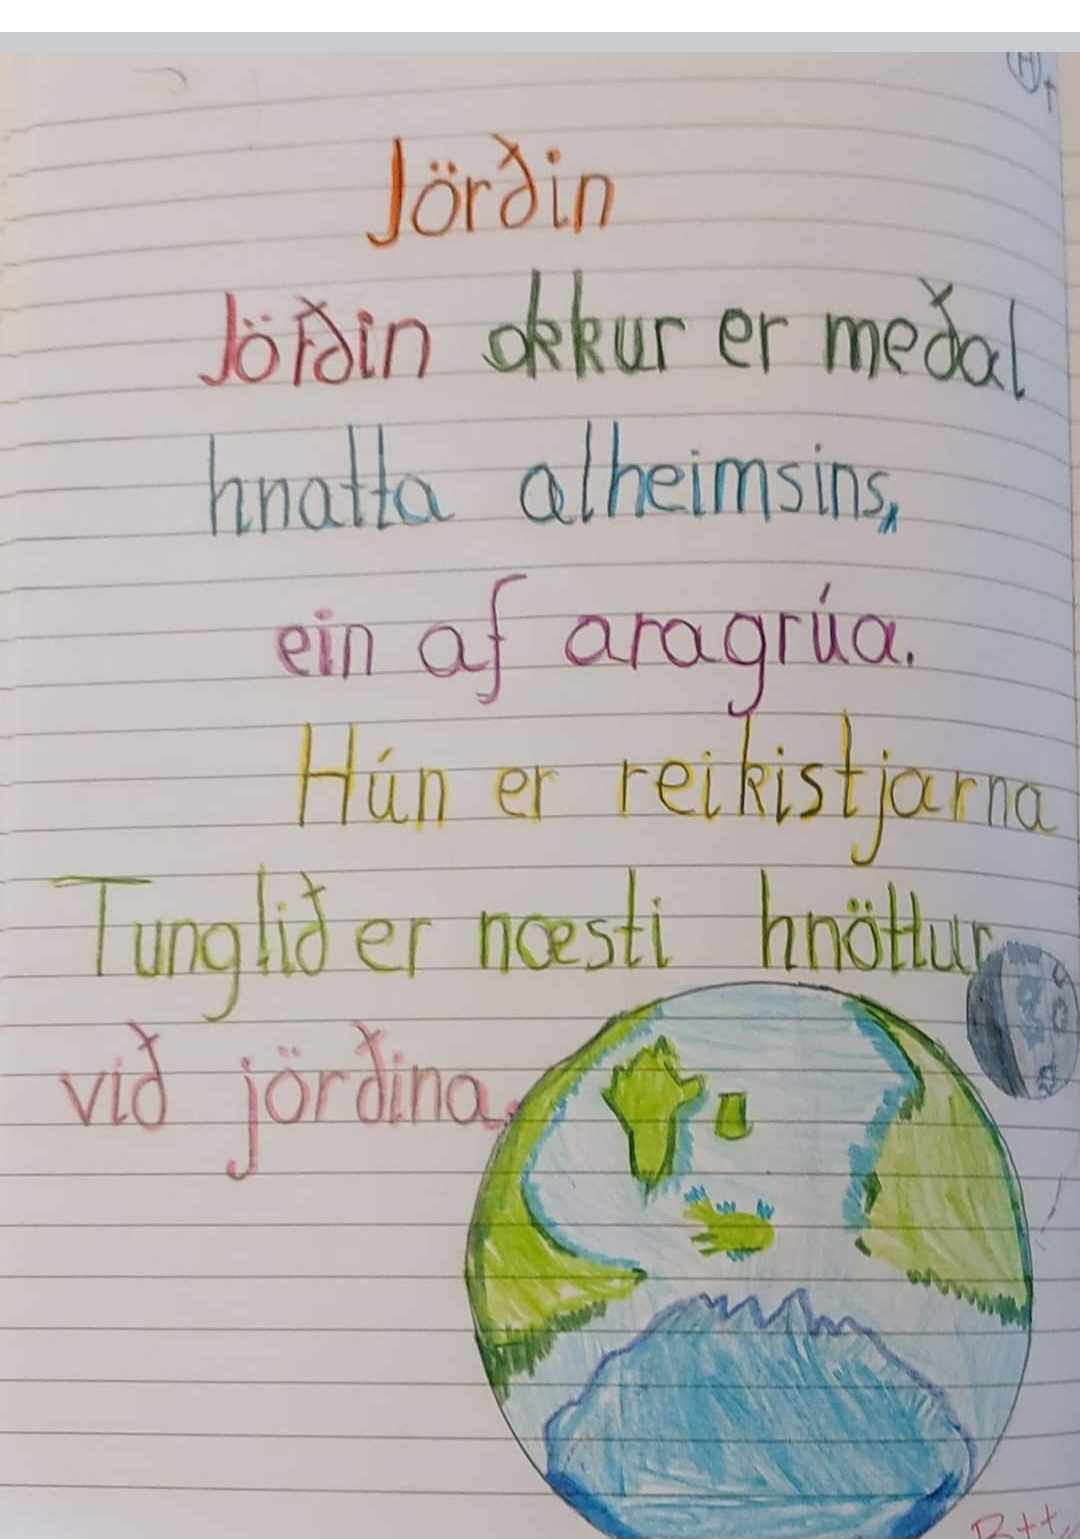 Jörðin
Jörðin okkur er meðal
hnatta alheimsins,
ein af aragrúa.
Hún er reikistjarna
Tunglið er næsti hnöttur
við jörðina.